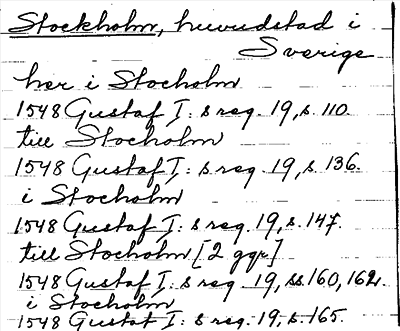 Stockholm, huvudstad i
Sverige
her i Stocholm
1548 Gustaf I: s reg. 19, s. 110.
till Stocholm
1548 Gustaf I: s reg. 19, s. 136.
i Stocholm
1548 Gustaf I: s reg. 19, s. 147.
till Stocholm [2 ggr]
1548 Gustaf I: s reg. 19, ss. 160, 162.
i Stocholm
1548 Gustaf I: s reg. 19, s. 165.